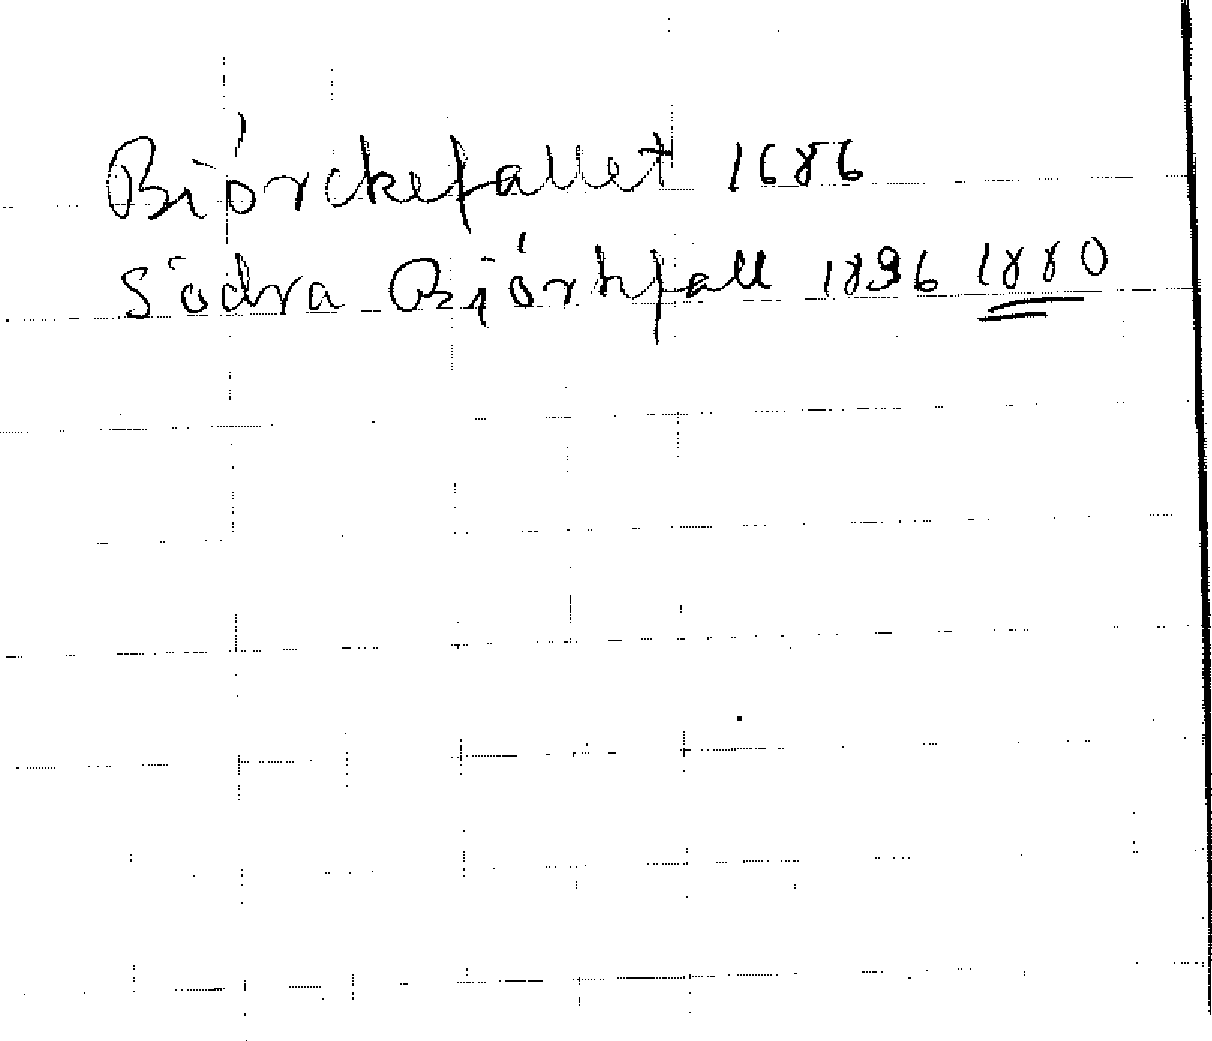 Biörckefallet 1686
Södra Björkfall 1896 1880